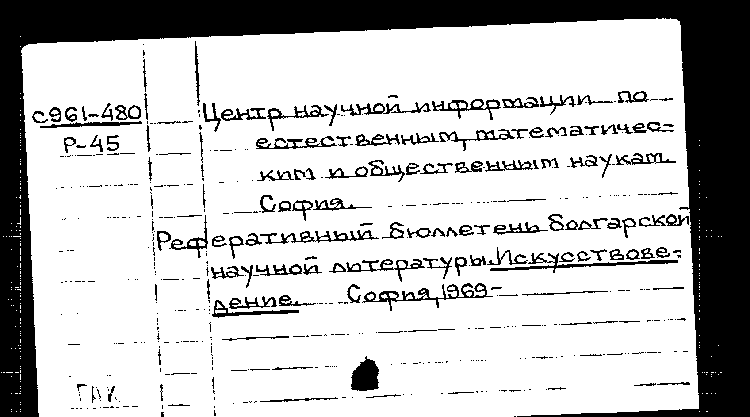 с961-480 Центр научной информации по
Р-45 естественным, математичес=
ким и общественным наукам.
София.
Реферативный бюллетень болгарской
научной литературы. Искусствове=
дение. София, 1969-
ГАК